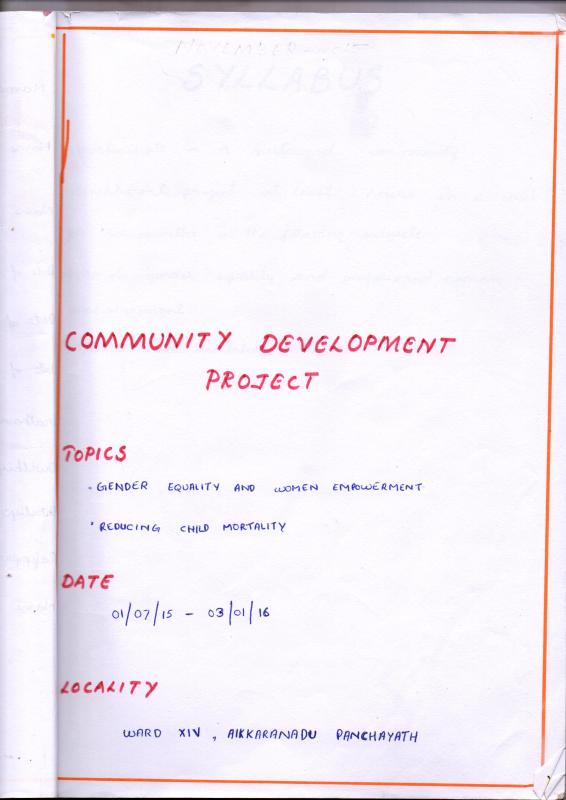 SYLLABUS
COMMUNITY DEVELOPMENT
PROJECT
TOPICS
• GENDER EQUALITY AND WOMEN EMPOWERMENT
• REDUCING CHILD MORTALITY
DATE
01/07/15 – 03/01/16
LOCALITY
WARD XIV , AIKKARANADU PANCHAYATH